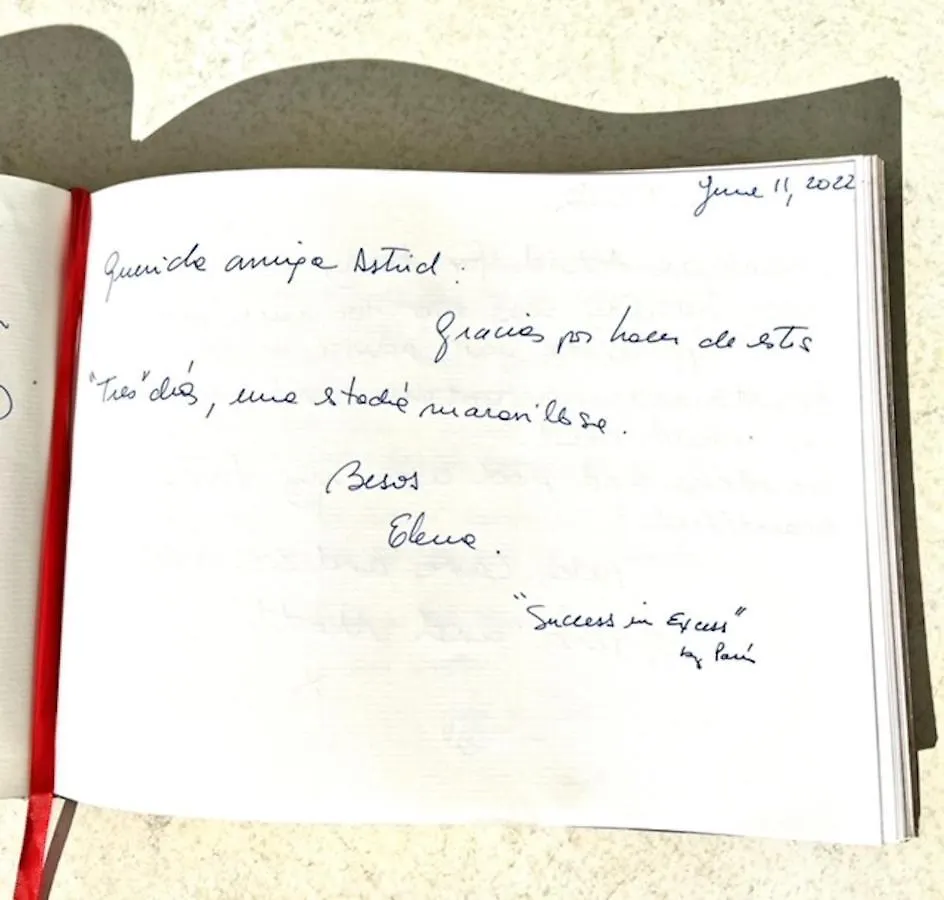 June 11, 2022
Querida amiga Astrid.
Gracias por hacer de estos
"Tres" días, una stadía maravillosa.
Besos
Elena.
"Success in Excess"
by París